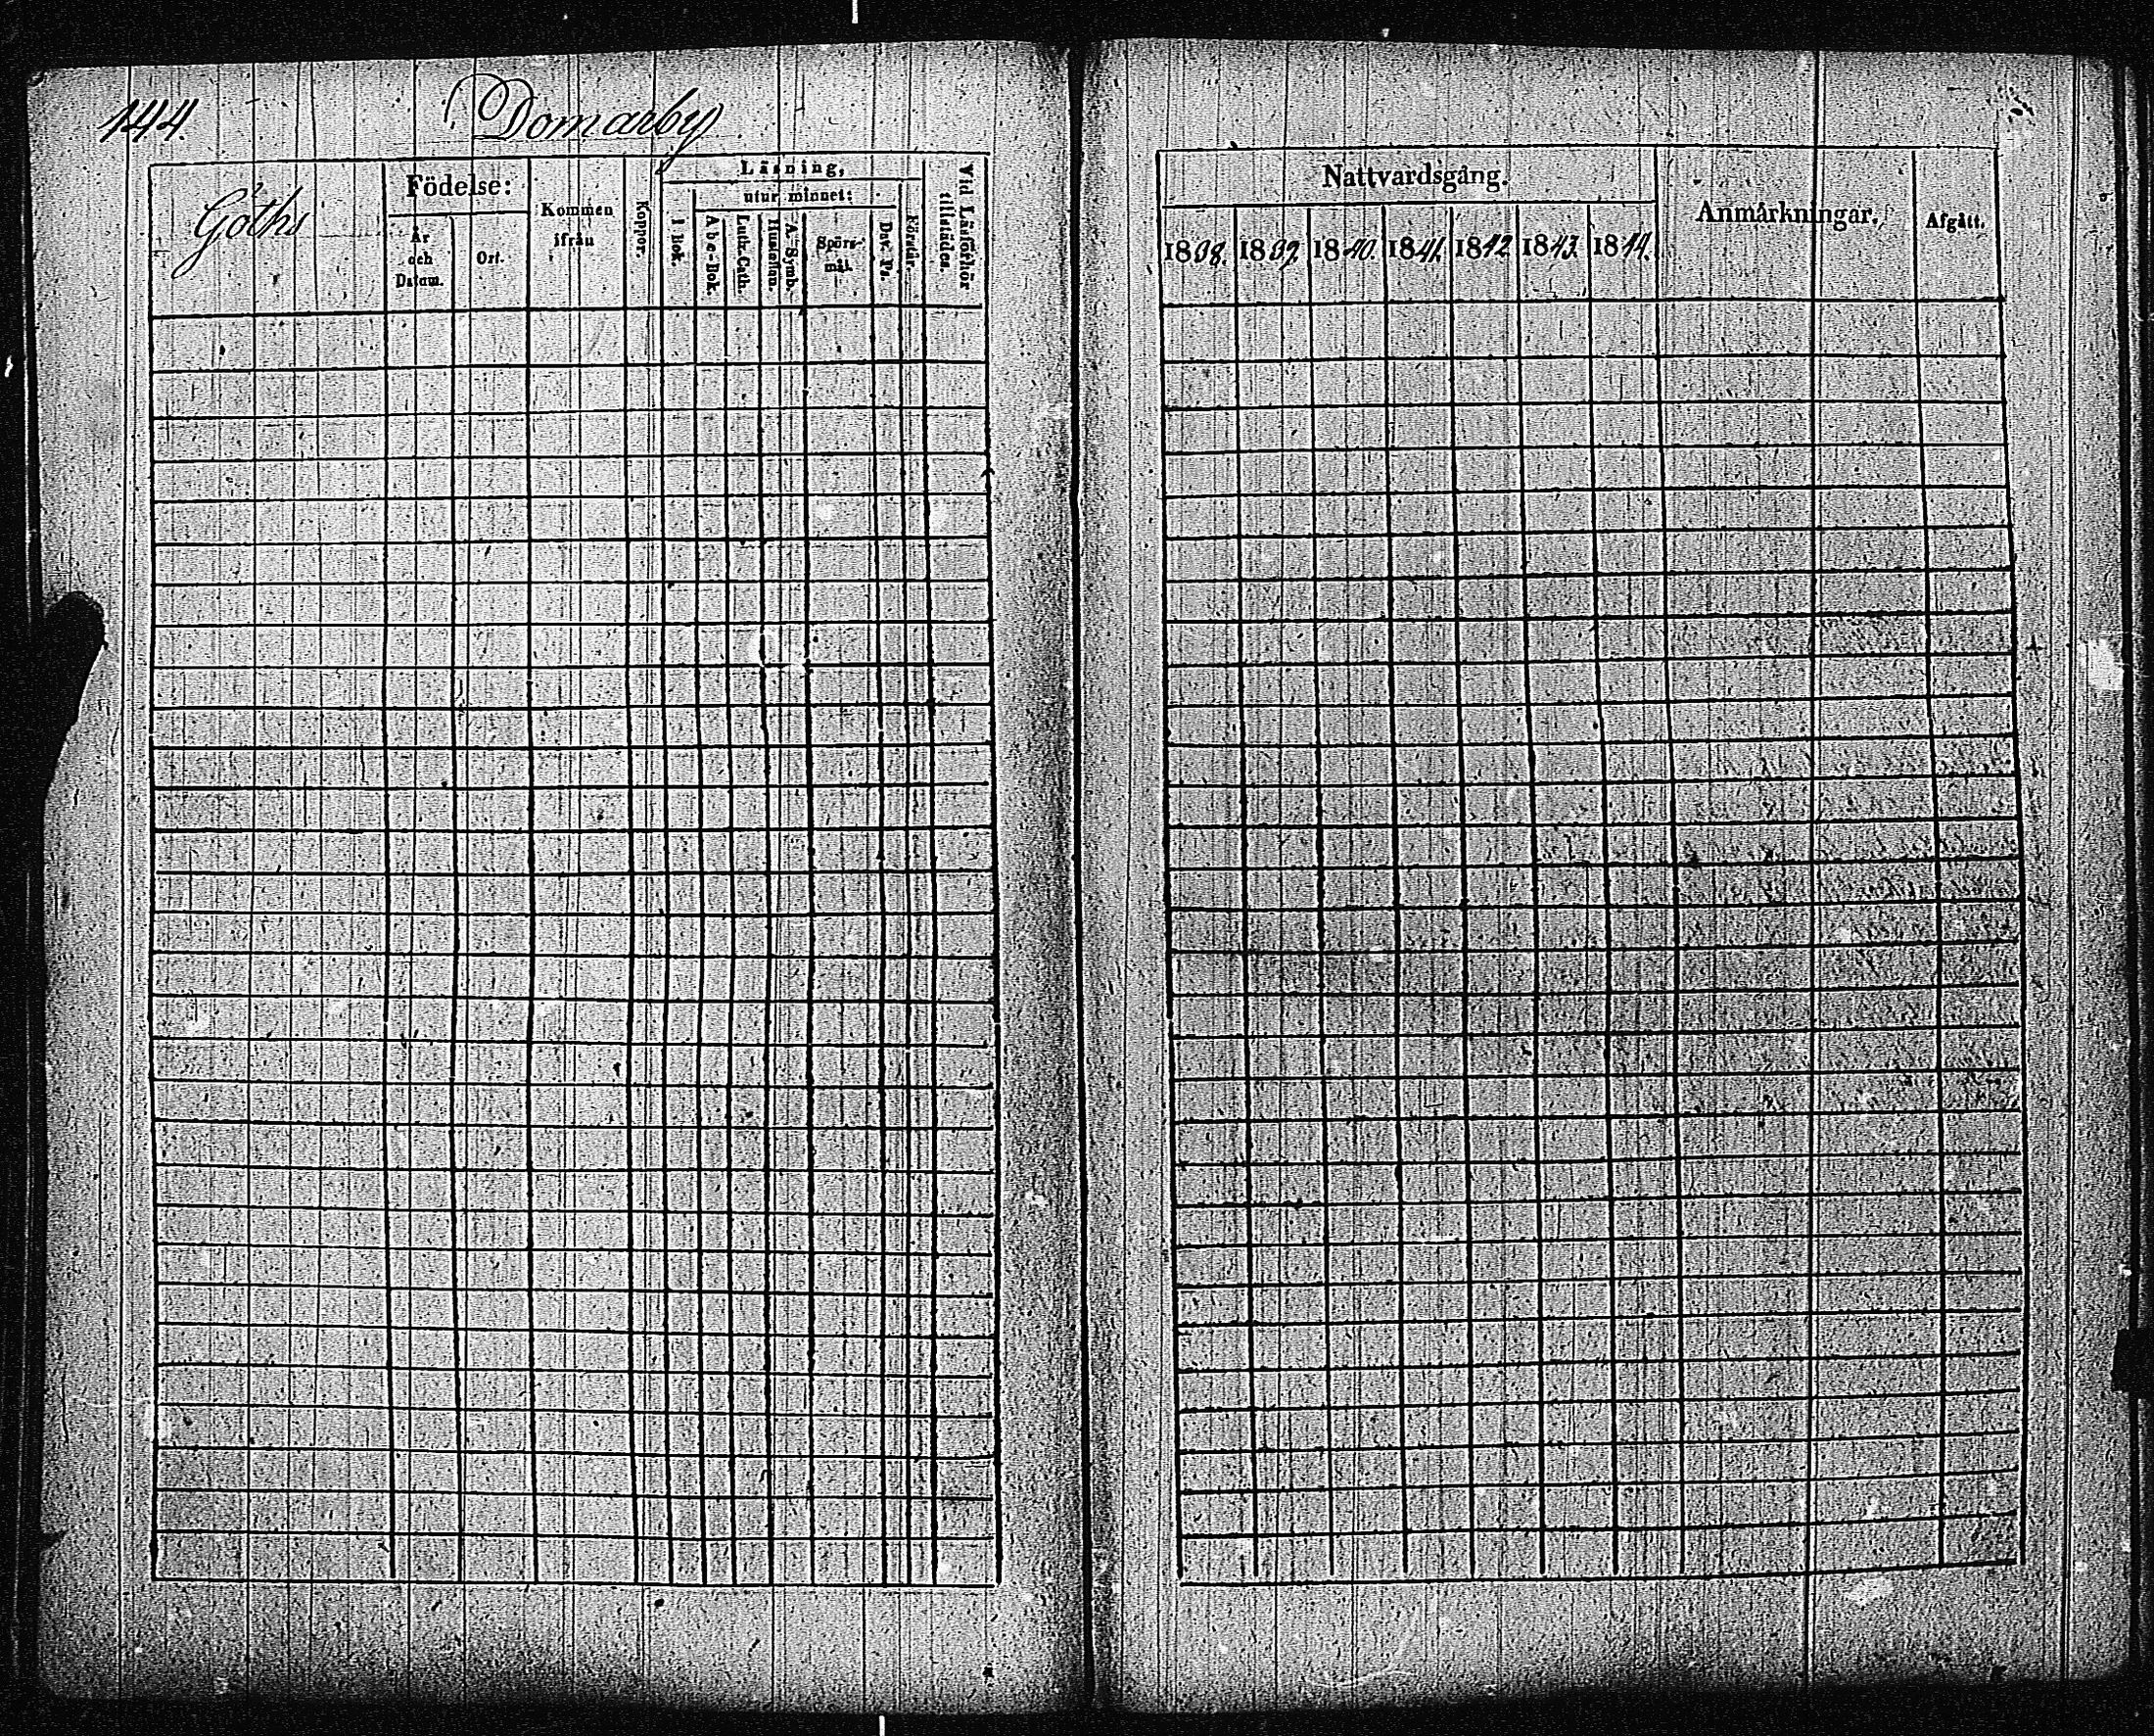 144
Domarby
Göths
Födelse:
År
och
Datum.
Ort.
Kommen
ifrån
Koppor.
Läsning,
I Bok.
utur minnet:
A b c-Bok.
Luth. Cath.
Hustaflan.
A. Symb.
Spörs-
mål.
Dav. Ps.
Förstår.
Vid Läsförhör
tillstädes.
Nattvardsgång.
1838.
1839.
1840.
1841.
1842
1843.
1844.
Anmärkningar.
Afgått.